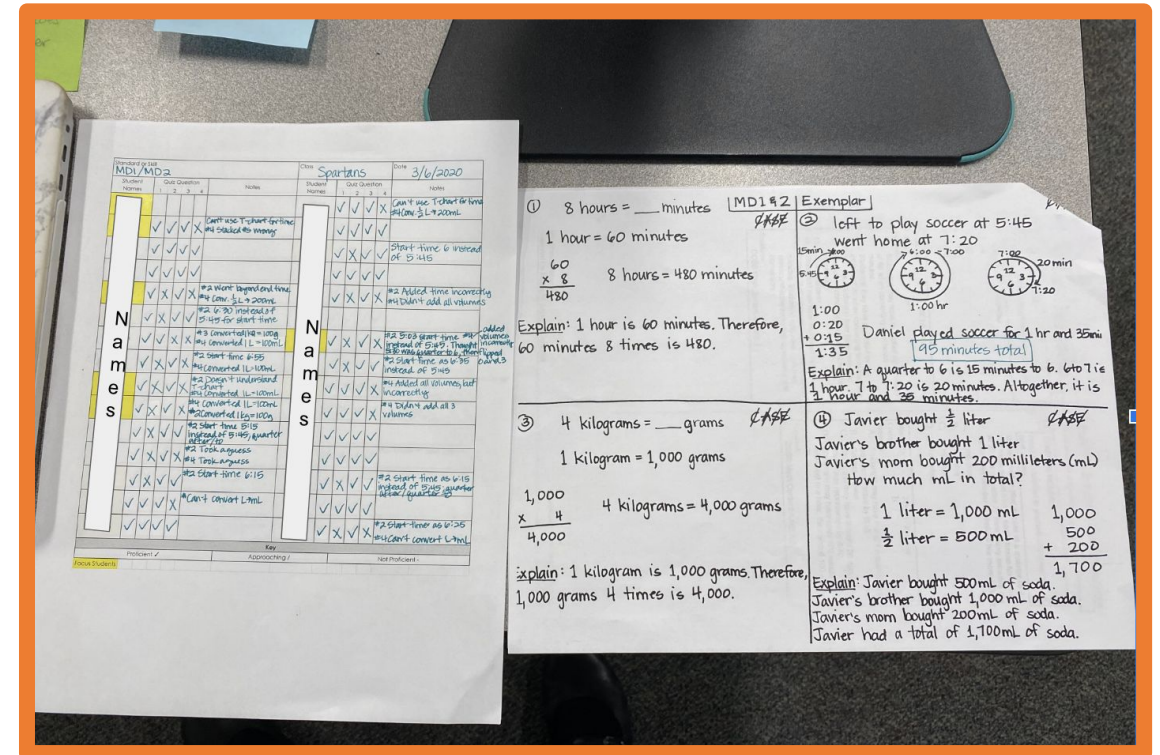 Standard or Skill
MD1/MD2
Class Spartans
Date 3/6/2020
Student Names
Quiz Question
1 2 3 4
Notes
Student Names
Quiz Question
1 2 3 4
Notes
Names
Can't use T-chart for time
#4 Stacked as money
#2 Went beyond end time
#4 Conv. ½L→200mL
#2 6:30 instead of
5:45 for start time
#3 Converted 1kg=100g
#4 Converted 1L=100mL
#2 Start time 6:55
#4 Converted 1L=100mL
#2 Doesn't understand
T-chart
#4 Converted 1L=100mL
#4 Converted 1L=100mL
#2 Converted 1kg=100g
#2 Start time 5:15
instead of 5:45, quarter
#2 Took a guess
#4 Took a guess
#2 Start time 6:15
Can't convert L→mL
Names
Can't use T-chart for time
#4 Conv. ½L→200mL
Start time 6 instead
of 5:45
#2 Added time incorrectly
#4 Didn't add all volumes
#2 5:03 start time
instead of 5:45. Thought
#4 added
volumes
#2 Start time as 6:35
instead of 5:45
#4 Added all volumes, but
incorrectly
#4 Didn't add all 3
volumes
#2 Start time as 6:15
instead of 5:45; quarter
after/quarter to
#2 Start time as 6:25
#4 Can't convert L→mL
Key
Proficient ✓
Approaching /
Not Proficient -
Focus Students
MD1 & 2 Exemplar
① 8 hours = ___ minutes
1 hour = 60 minutes
60
x 8
480
8 hours = 480 minutes
Explain: 1 hour is 60 minutes. Therefore,
60 minutes 8 times is 480.
② left to play soccer at 5:45
went home at 7:20
15min
5:45
12 3 6 9
6:00→7:00
12 3 6 9
1:00 hr
7:00
12 3 6 9
20 min
7:20
1:00
0:20
+ 0:15
1:35
Daniel played soccer for 1 hr and 35min
95 minutes total
Explain: A quarter to 6 is 15 minutes to 6. 6 to 7 is
1 hour. 7 to 7:20 is 20 minutes. Altogether, it is
1 hour and 35 minutes.
③ 4 kilograms = ___ grams
1 kilogram = 1,000 grams
1,000
x 4
4,000
4 kilograms = 4,000 grams
Explain: 1 kilogram is 1,000 grams. Therefore,
1,000 grams 4 times is 4,000.
④ Javier bought ½ liter
Javier's brother bought 1 liter
Javier's mom bought 200 millileters (mL)
How much mL in total?
1 liter = 1,000 mL
½ liter = 500 mL
1,000
500
+ 200
1,700
Explain: Javier bought 500mL of soda.
Javier's brother bought 1,000 mL of soda.
Javier's mom bought 200mL of soda.
Javier had a total of 1,700mL of soda.